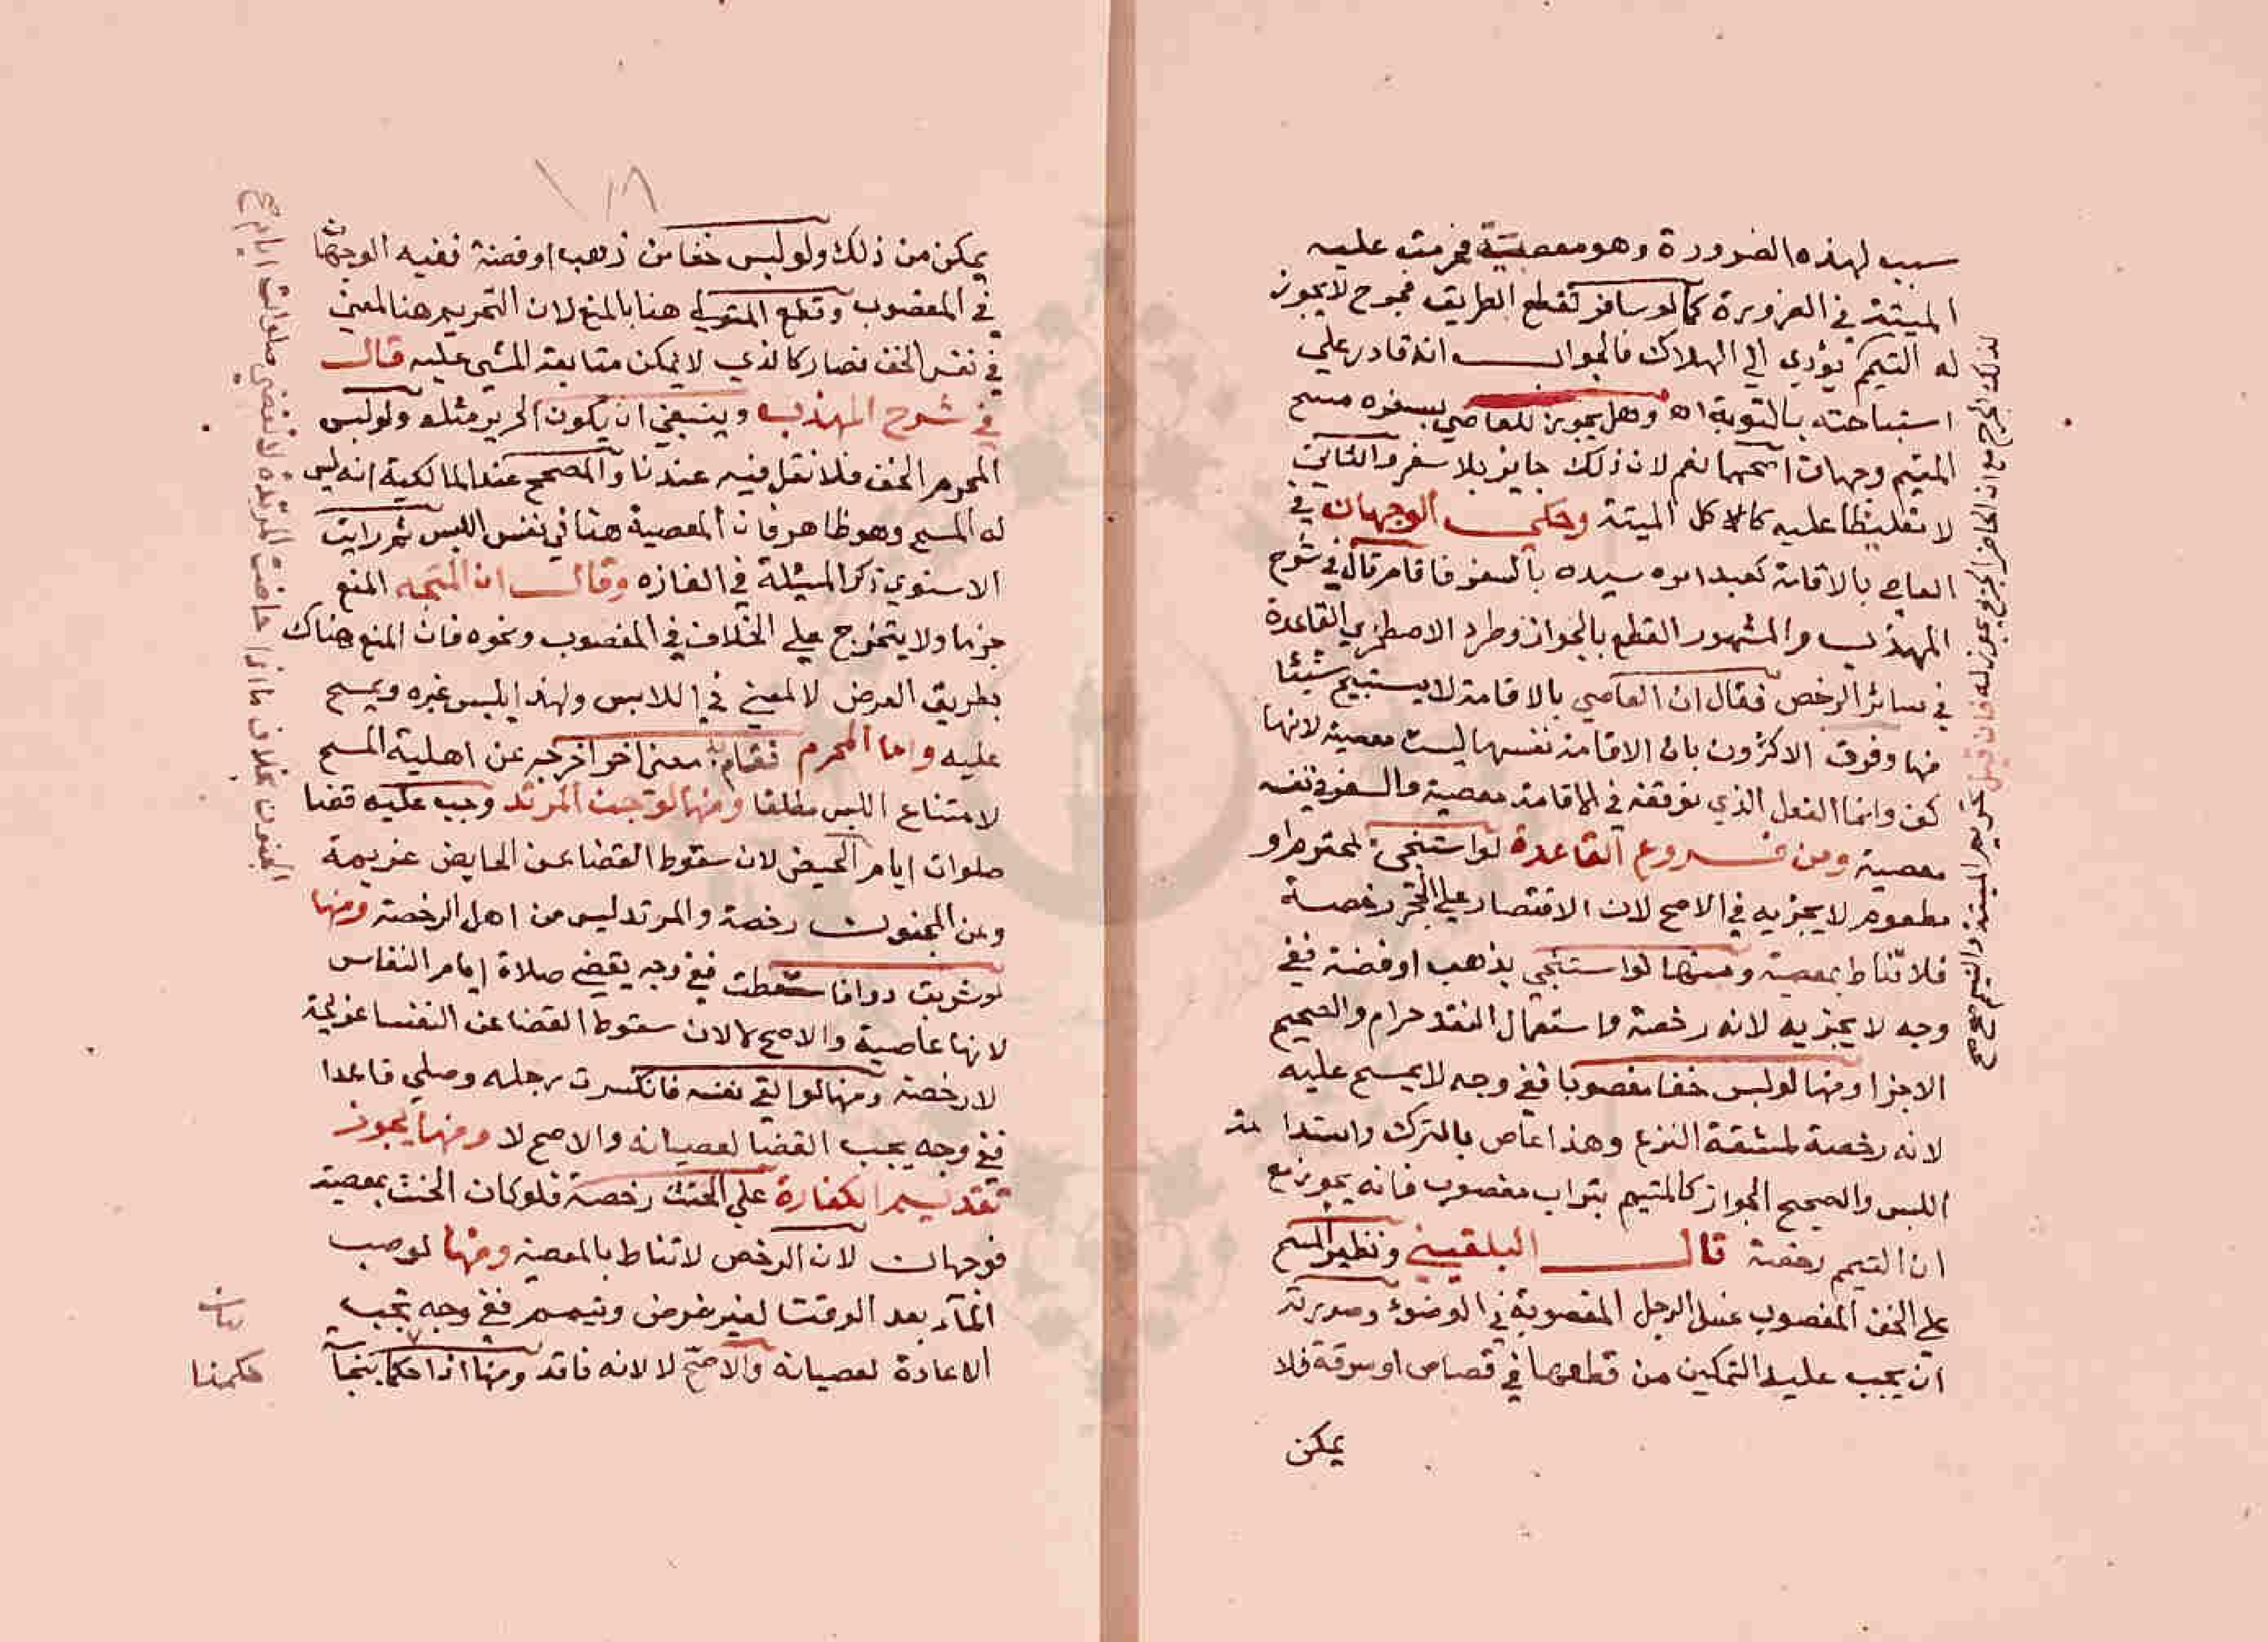 سبب لهذه الضرورة وهو معصية فحرمت عليه
الميتة في الضرورة كما لو سافر لقطع الطريق فجرح لا يجوز
له التيمم يؤدي الي الهلاك فالجواب انه قادر علي
استباحته بالتوبة اه وهل يجوز للعاصي بسفره مسح
المقيم وجهان اصحهما نعم لان ذلك جايز بلا سفر والثاني
لا تغليظا عليه كالاكل الميتة وحكي الوجهان في
العاصي بالاقامة كعبد امره سيده بالسفر فاقام قال في شرح
المهذب والمشهور القطع بالجواز وطرد الاصطخري القاعدة
في سائر الرخص فقال ان العاصي بالاقامة لا يستبيح شيئا
منها وفرق الاكثرون بان الاقامة نفسها ليست معصية لانها
كف وانما الفعل الذي يوقفه في الاقامة معصية والسفر في نفسه
معصية ومن فروع القاعدة لو استنجي بمحترم او
مطعوم لا يجزيه في الاصح لان الاقتصار علي الحجر رخصة
فلا تناط بمعصية ومنها لو استنجي بذهب او فضة ففي
وجه لا يجزيه لانه رخصة واستعمال النقد حرام والصحيح
الاجزا ومنها لو لبس خفا مغصوبا ففي وجه لا يمسح عليه
لانه رخصة لمشقة النزع وهذا عاص بالترك واستدامة
اللبس والصحيح الجواز كالمتيمم بتراب مغصوب فانه يجوز مع
ان التيمم رخصة قال البلقيني ونظير المسح
علي الخف المغصوب غسل الرجل المغصوبة في الوضوء وصورته
ان يجب عليه التمكين من قطعها في قصاص او سرقة فلا
يمكن
لذلك الجرح مع ان الحاضر الجريح يجوز له فان قيل تحريم الميتة والتيمم صح
يمكن من ذلك ولو لبس خفا من ذهب او فضة ففيه الوجهان
في المغصوب وقطع المتولي هنا بالمنع لان التحريم هنا لمعني
في نفس الخف فصار كالذي لا يمكن متابعة المشي عليه قال
في شرح المهذب وينبغي ان يكون الحرير مثله ولو لبس
المحرم الخف فلا نقل فيه عندنا والمصحح عند المالكية انه ليس
له المسح وهو ظاهر فان المعصية هنا في نفس اللبس ثم رايت
الاسنوي ذكر المسئلة في الغازه وقال ان المتجه المنع
جزما ولا يتخرج علي الخلاف في المغصوب ونحوه فان المنع هناك
بطريق العرض لا لمعني في اللابس ولهذا يلبس غيره ويمسح
عليه واما المحرم فقام به معني اخر اخرجه عن اهلية المسح
لامتناع اللبس مطلقا ومنها لو جن المرتد وجب عليه قضا
صلوات ايام الحيض لان سقوط القضا عن الحايض عزيمة
وعن المجنون رخصة والمرتد ليس من اهل الرخصة ومنها
لو شربت دوافا سقطت ففي وجه يقضي صلاة ايام النفاس
لانها عاصية والاصح لا لان سقوط القضا عن النفسا عزيمة
لا رخصة ومنها لو القي نفسه فانكسرت رجله وصلي قاعدا
ففي وجه يجب القضا لعصيانه والاصح لا ومنها يجوز
تقديم الكفارة علي الحنث رخصة فلو كان الحنث بمعصية
فوجهان لان الرخص لا تناط بالمعصية ومنها لو صب
الماء بعد الوقت لغير غرض وتيمم ففي وجه تجب
الاعادة لعصيانه والاصح لا لانه فاقد ومنها اذا حكما بنجاسة
صلوات ايام الجنون بخلاف ما اذا حاضت المرتدة لا تقضي صلوات ايام
بيان
حكمنا